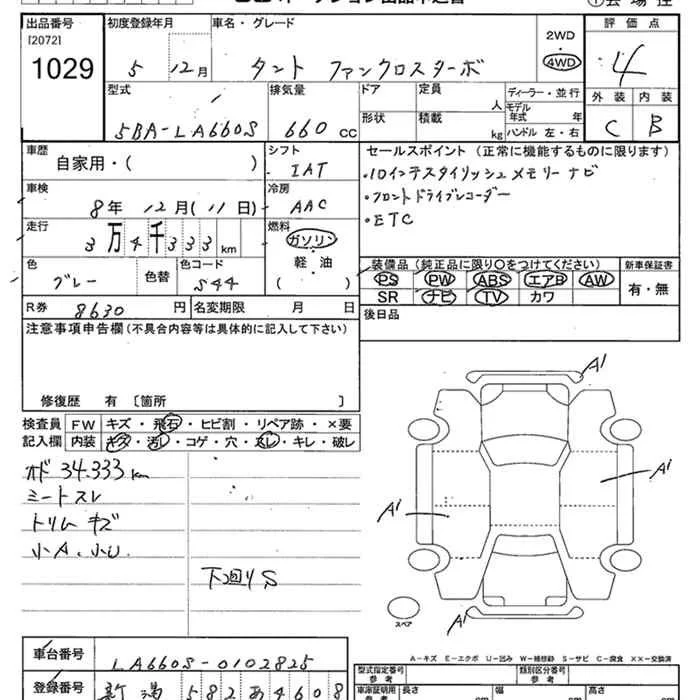 出品番号 初度登録年月 車名・グレード 2WD 評価点
[2072] ・
1029 5 12月 タント ファンクロスターボ 4WD 4
型式 排気量 ドア 定員 ディーラー・並行 外装 内装
人 モデル年式 年
5BA-LA660S 660 CC 形状 積載 kg ハンドル 左・右 C B
車歴 シフト セールスポイント (正常に機能するものに限ります)
自家用・( ) IAT ・10インチスタイリッシュメモリーナビ
車検 冷房 ・フロントドライブレコーダー
8年 12月(11日) AAC ・ETC
走行 燃料
3万4千333km ガソリン
色 色替 色コード 軽・油 装備品 (純正品に限り○をつけてください) 新車保証書
グレー S44 ( ) PS PW ABS エアB AW 有・無
R券 8630 円 名変期限 月 日 SR ナビ TV カワ
注意事項申告欄(不具合内容等は具体的に記入して下さい) 後日品
修復歴 有 〔箇所 〕
検査員 FW キズ・飛石・ヒビ割・リペア跡・×要
記入欄 内装 キズ・汚レ・コゲ・穴・スレ・キレ・破レ
オド 34.333km
シートスレ
トリムキズ
小A.小U
下回りS
A1
A1
A1
A1
スペア
車台番号 LA660S-0102825
A-キズ E-エクボ U-凹み W-補修跡 S-サビ C-腐食 XX-交換済
登録番号 新潟 582 あ 4608
型式指定番号 参考 類別区分番号 参考
車庫証明用 参考 長さ cm 幅 cm 高さ cm